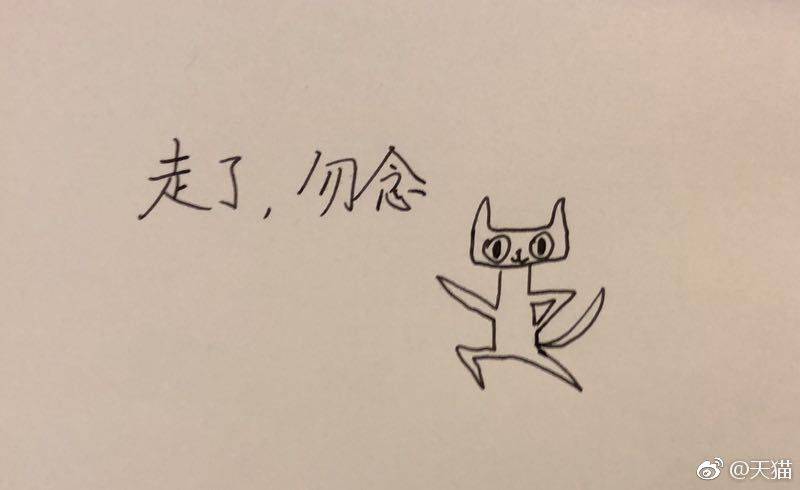 走了，勿念
@天猫